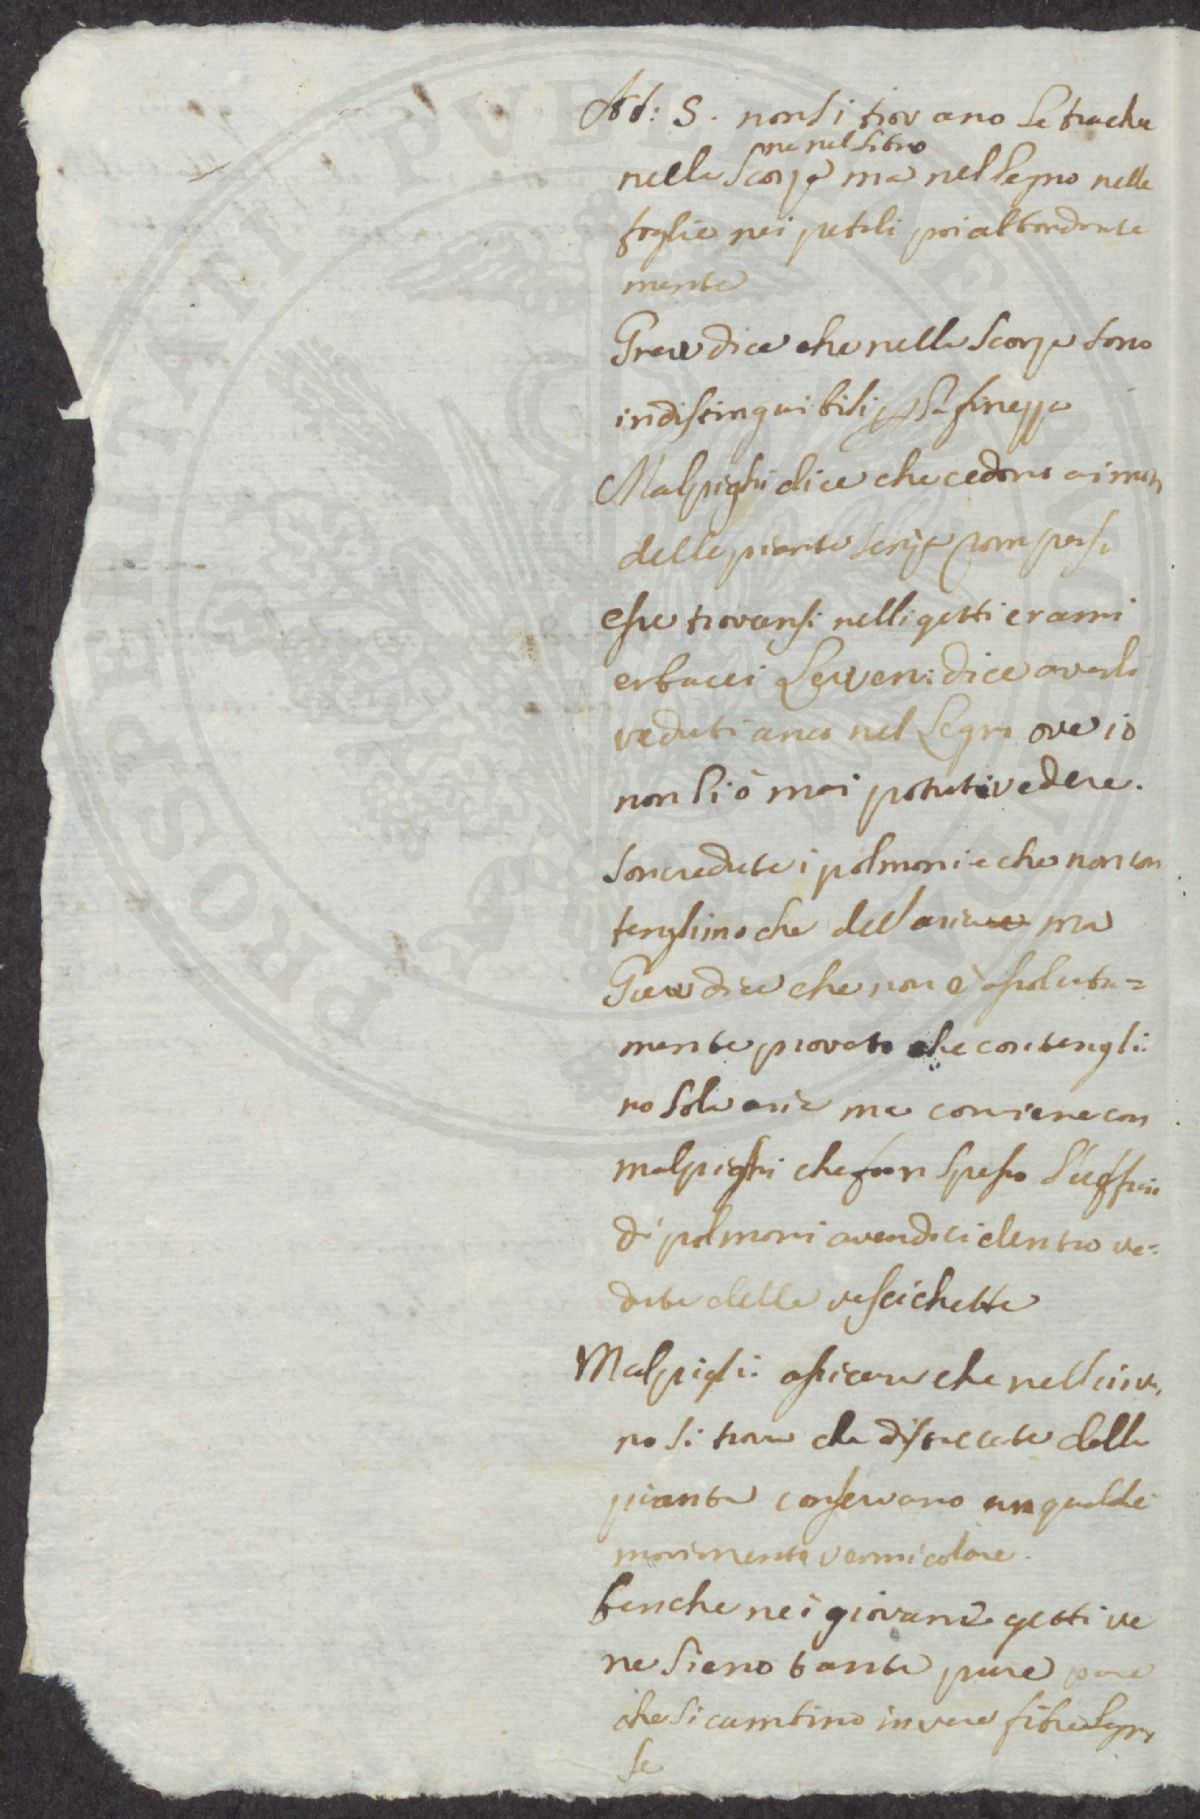 S. non si trovano le trache
ne nel libro
nella scorza ma nel legno nelle
foglie nei petali poi abbondante
mente
Grew dice che nella scorza sono
indistinguibili p la finezza
Malpighi dice che cedono ai moti
delle piante senza rompersi
che trovansi nelli getti e rami
erbacei Lewen: dice averli
veduti anco nel legno ove io
non li ò mai potuti vedere.
son credute i polmoni e che non con
tenghino che dell aria ma
Grew dice che non è asoluta=
mente provato che contenghi:
no sola aria ma conviene con
malpighi che fan speso l'uffizio
di polmoni avendoci dentro ve=
dute delle vescichette
Malpighi: asicura che nell inver
no si trova che distaccate dalla
piante conservano un qualche
movimento vermicolare.
benche nei giovani getti ve
ne sieno tante pure pare
che si cambino in vere fibre legno
se
PROSPERITATI PVBLICAE